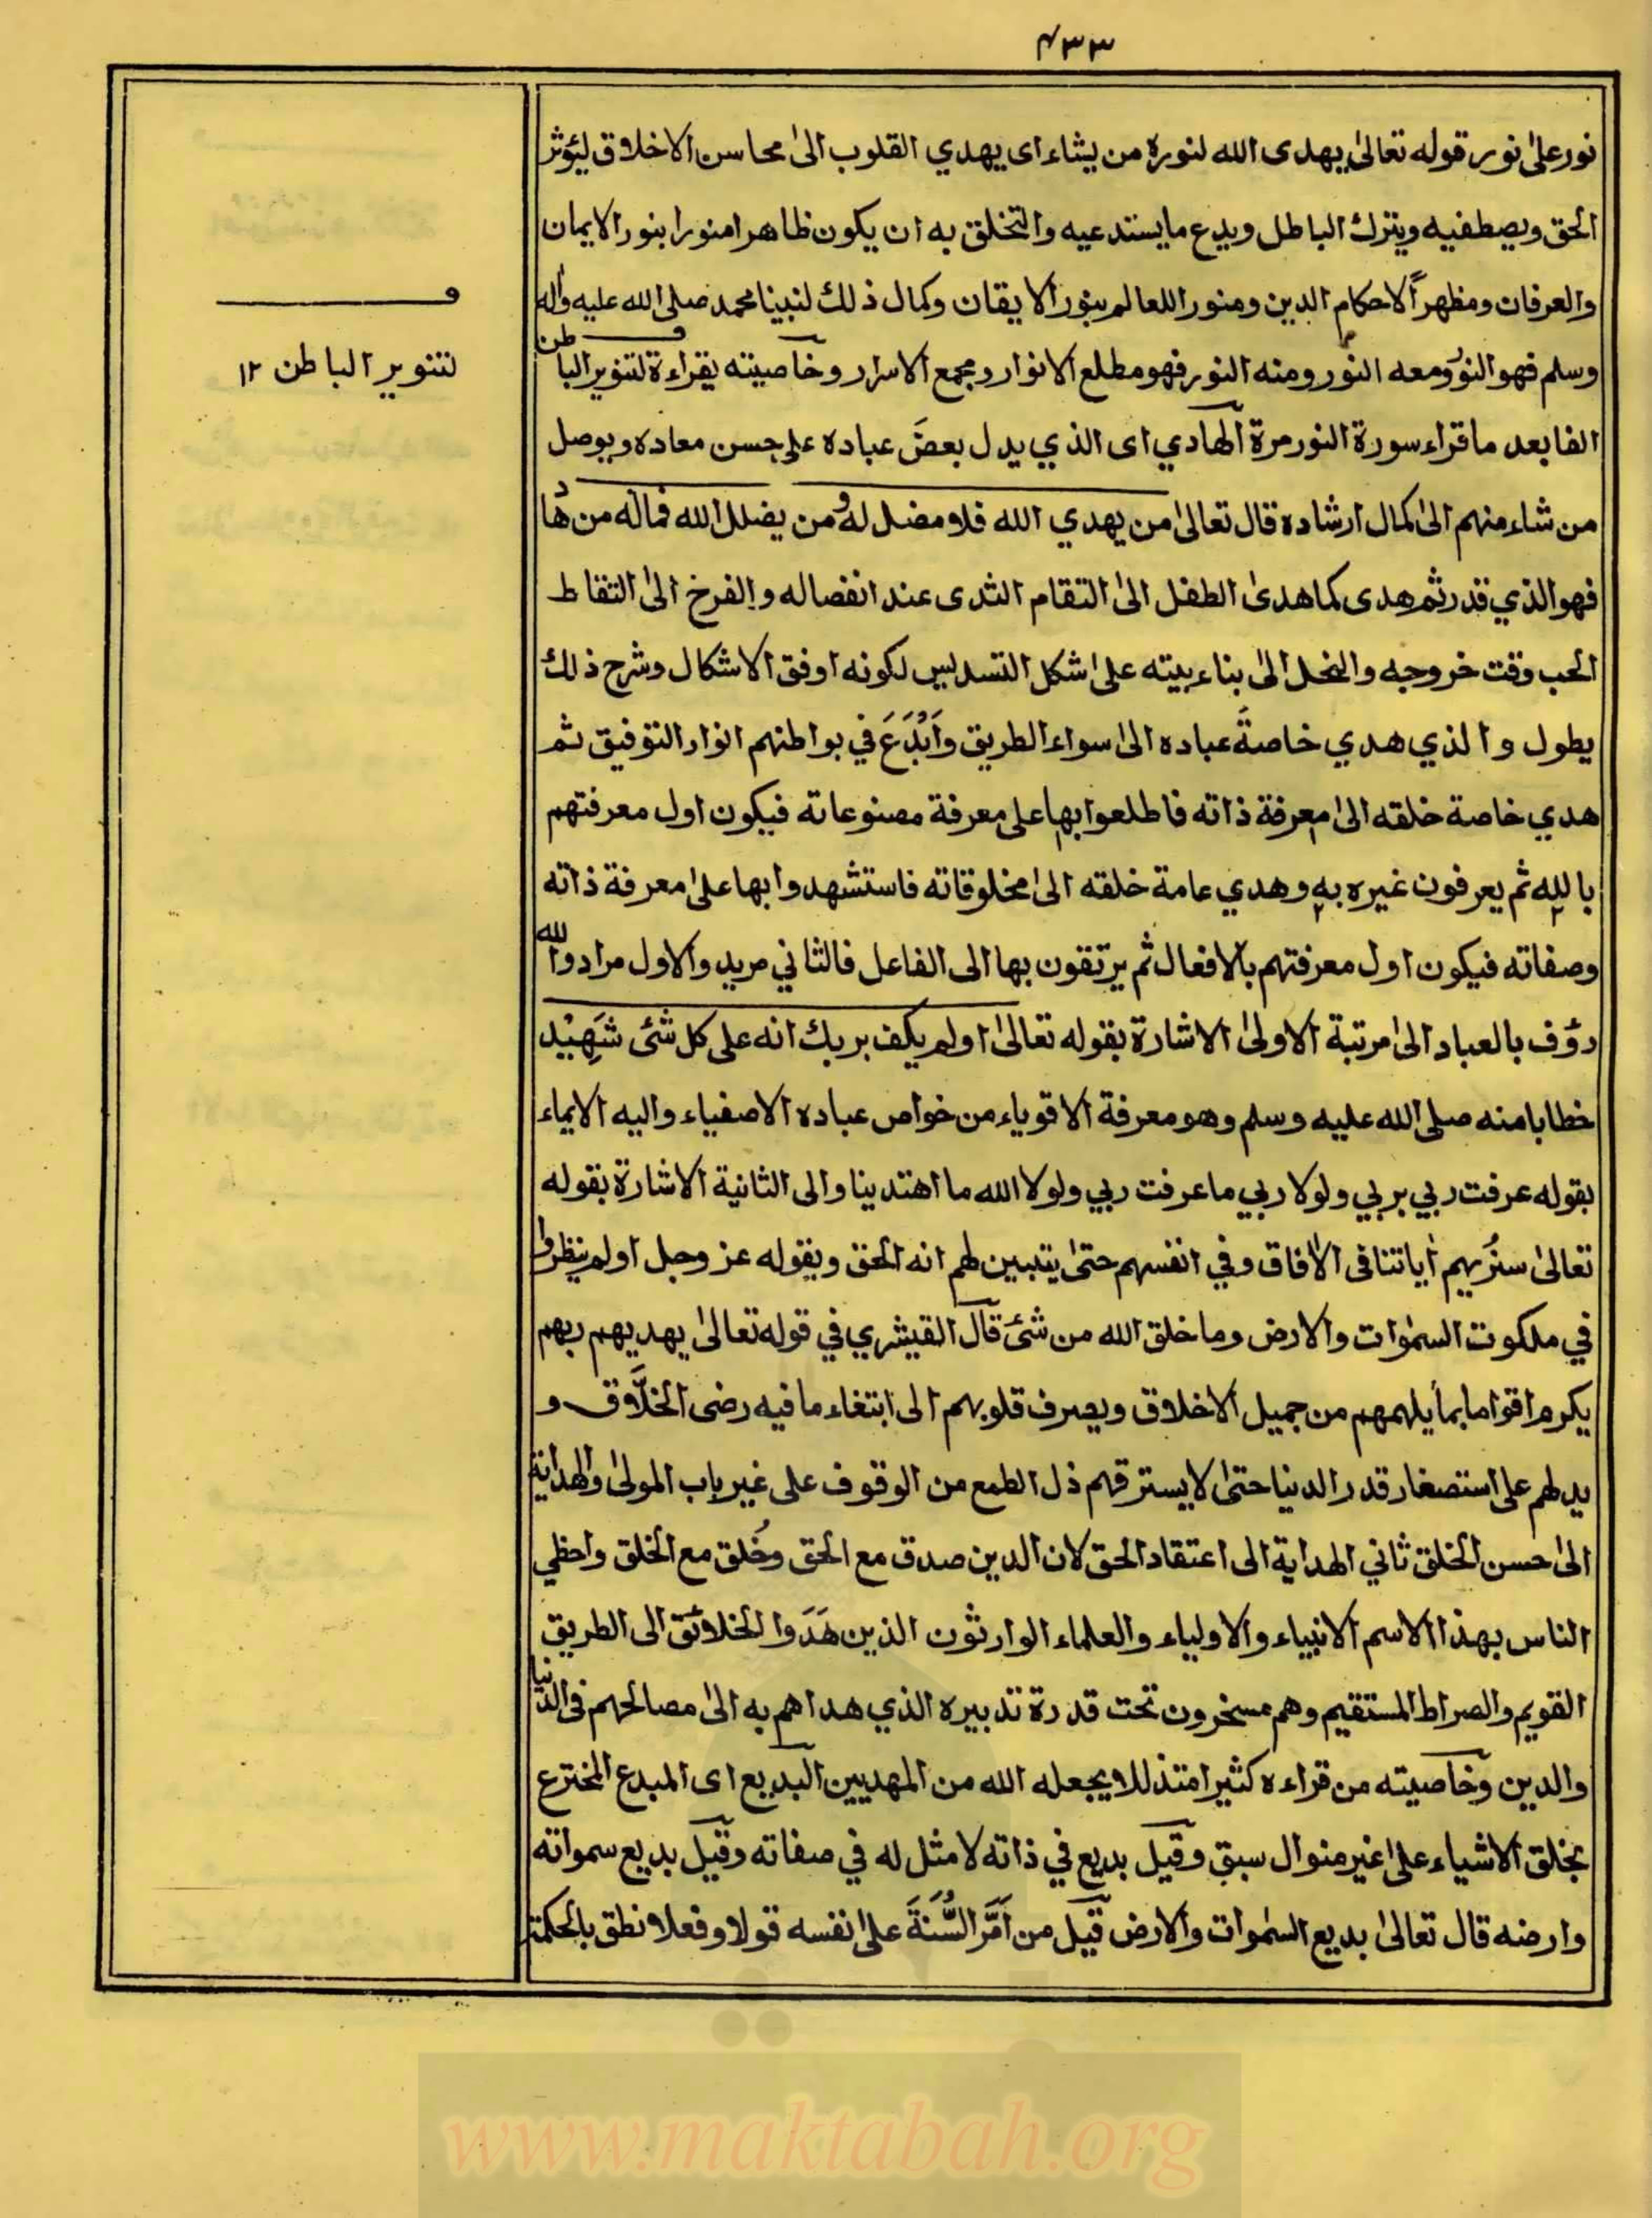 ۴۳۳
نور علیٰ نور قوله تعالیٰ یهدی الله لنوره من یشاء ای یهدي القلوب الیٰ محاسن الاخلاق لیؤثر
الحق ویصطفیه ویترك الباطل ویدع ما یستدعیه والتخلق به ان یکون ظاهرا منورا بنور الایمان
والعرفان ومظهراً لاحکام الدین ومنورا للعالم بنور الایقان وکمال ذلك لنبینا محمد صلی الله علیه واٰله
وسلم فهو النور ومعه النور ومنه النور فهو مطلع الانوار ومجمع الاسرار وخاصیته یقراءة لتنویر الباطن
الفا بعد ما قراء سورة النور مرة الهادي ای الذي یدل بعضَ عباده علی حسن معاده ویوصل
من شاء منهم الیٰ کمال ارشاده قال تعالیٰ من یهدي الله فلا مضل له ومن یضلل الله فماله من هاد
فهو الذي قدر ثم هدی کما هدیٰ الطفل الیٰ التقام الثدی عند انفصاله والفرخ الیٰ التقاط
الحب وقت خروجه والنحل الیٰ بناء بیته علیٰ شکل التسدیس لکونه اوفق الاشکال وشرح ذلك
یطول والذي هدي خاصةَ عباده الیٰ سواء الطریق وَاَبْدَعَ في بواطنهم انوار التوفیق ثم
هدي خاصة خلقه الیٰ معرفة ذاته فاطلعوا بها علی معرفة مصنوعاته فیکون اول معرفتهم
بالله ثم یعرفون غیره به وهدي عامة خلقه الیٰ مخلوقاته فاستشهدوا بها علیٰ معرفة ذاته
وصفاته فیکون اول معرفتهم بالافعال ثم یرتقون بها الی الفاعل فالثاني مرید والاول مراد والله
رؤف بالعباد الیٰ مرتبة الاولیٰ الاشارة بقوله تعالیٰ اولم یکف بربك انه علی کل شئ شَهِیْد
خطابا منه صلی الله علیه وسلم وهو معرفة الاقویاء من خواص عباده الاصفیاء والیه الایماء
بقوله عرفت ربي بربي ولولا ربي ما عرفت ربي ولولا الله ما اهتدینا والی الثانیة الاشارة بقوله
تعالیٰ سنُریهم اٰیاتنا فی الاٰفاق وفي انفسهم حتیٰ یتبین لهم انه الحق وبقوله عز وجل اولم ینظروا
في ملکوت السمٰوات والارض وما خلق الله من شئ قال القیشري في قوله تعالیٰ یهدیهم ربهم
یکرم اقواما بما یلهمهم من جمیل الاخلاق ویصرف قلوبهم الی ابتغاء ما فیه رضی الخلَّاق و
یدلهم علی استصغار قدر الدنیا حتیٰ لا یسترقهم ذل الطمع من الوقوف علی غیر باب المولیٰ والهدایة
الیٰ حسن الخلق ثاني الهدایة الی اعتقاد الحق لان الدین صدق مع الحق وخُلق مع الخلق واحظي
الناس بهذا الاسم الانبیاء والاولیاء والعلماء الوارثون الذین هَدَوا الخلائق الی الطریق
القویم والصراط المستقیم وهم مسخرون تحت قدرة تدبیره الذي هداهم به الیٰ مصالحهم فی الدنیا
والدین وخاصیته من قراءه کثیرا متذللا یجعله الله من المهدیین البدیع ای المبدع المخترع
بخلق الاشیاء علیٰ غیر منوال سبق وقیل بدیع في ذاته لا مثل له في صفاته وقیل بدیع سمواته
وارضه قال تعالیٰ بدیع السمٰوات والارض قیل من اَمَّر السُّنَةَ علیٰ نفسه قولا وفعلا نطق بالحکمة
لتنویر الباطن ۱۲
www.maktabah.org